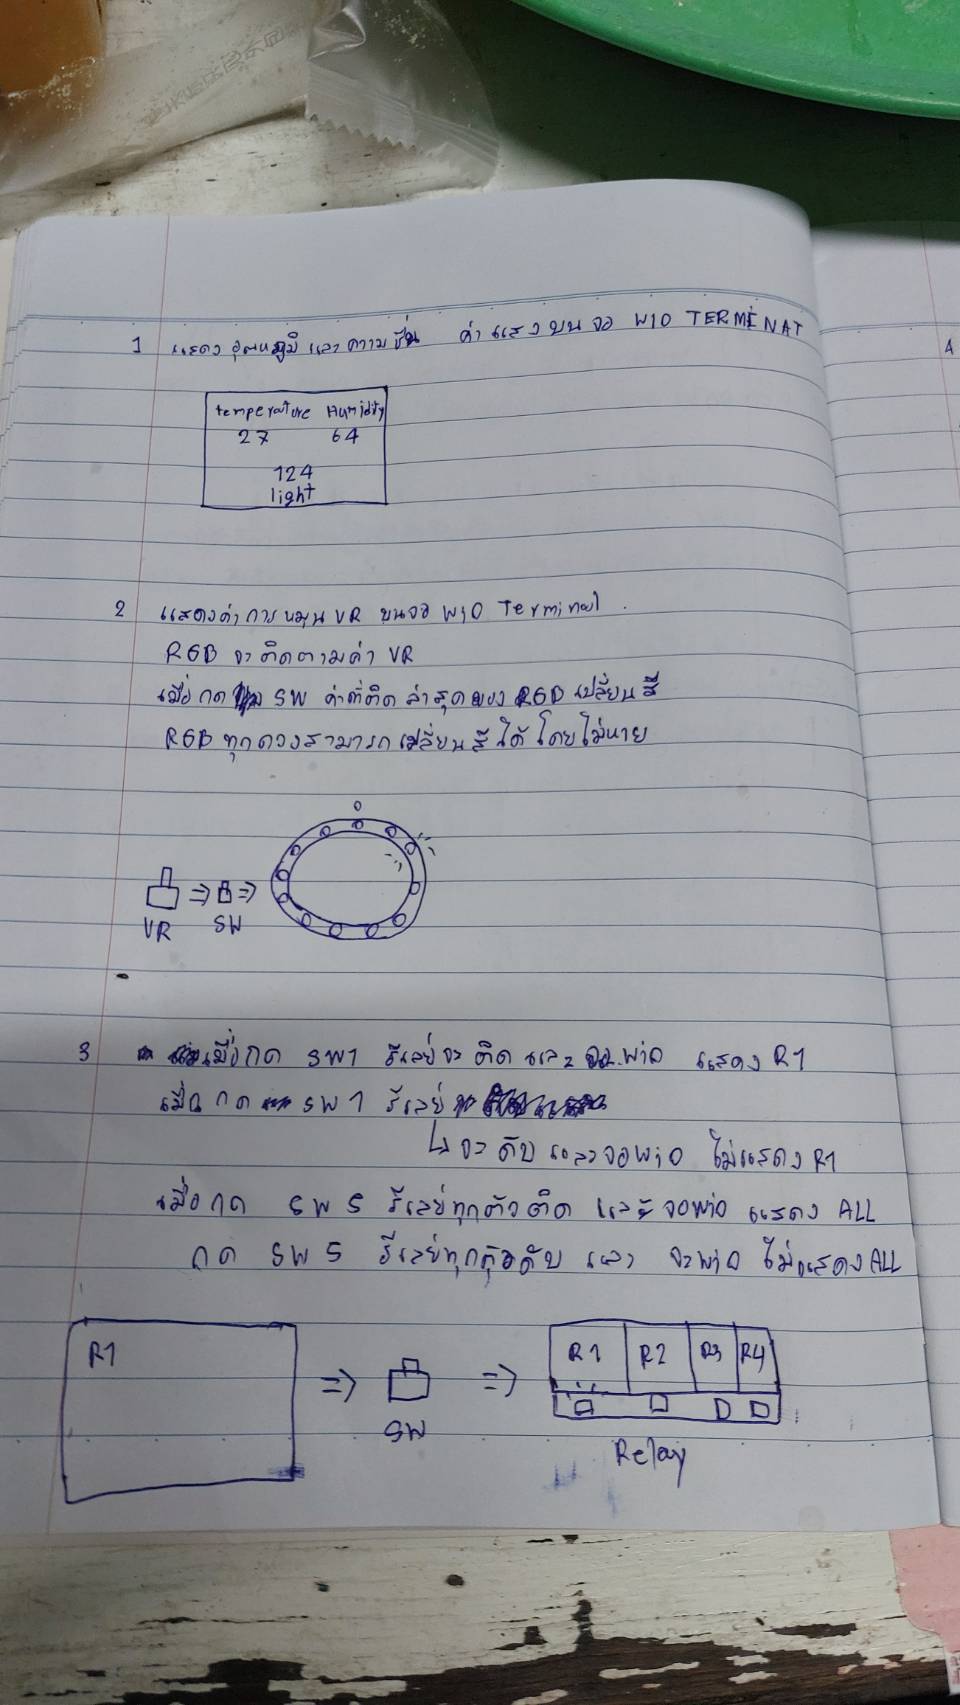 1 แสดง อุณหภูมิ และ ความชื่น ค่า แสง บน จอ WIO TERMINAT
4
temperature Humidity
27 64
124
light
2 แสดงค่าการหมุน VR บนจอ WIO Terminal.
RGB จะติดตามค่า VR
เมื่อกด SW ค่าที่ติด ล่าสุดของ RGB เปลี่ยนสี
RGB ทุกดวงสามารถเปลี่ยนสีได้ โดยไม่หาย
0
⇒ ⇒
VR SW
3 เมื่อกด SW1 รีเลย์จะติด และ จอ wio แสดง R1
เมื่อกด SW1 รีเลย์
↳ จะดับ และจอ wio ไม่แสดง R1
เมื่อกด SW5 รีเลย์ทุกตัวติด และ จอwio แสดง ALL
กด SW5 รีเลย์ทุกตัวดับ และ จอwio ไม่แสดง ALL
R1 ⇒ ⇒ R1 R2 R3 R4
SW
Relay